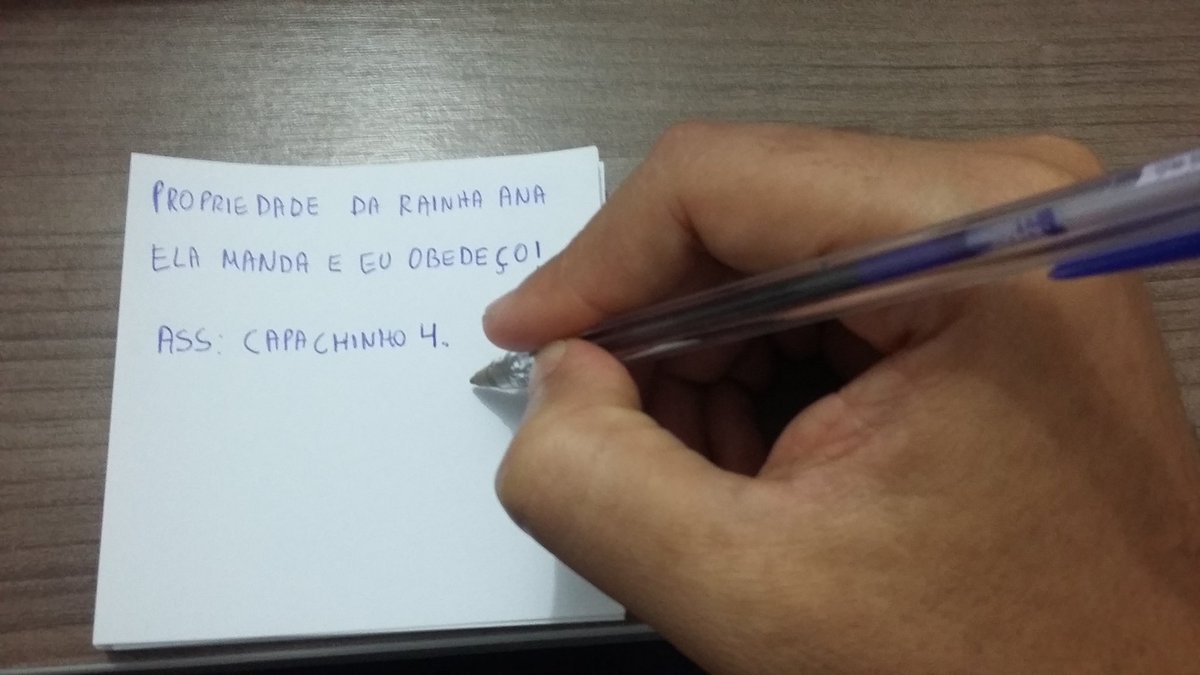 PROPRIEDADE DA RAINHA ANA
ELA MANDA E EU OBEDEÇO!
ASS: CAPACHINHO 4.